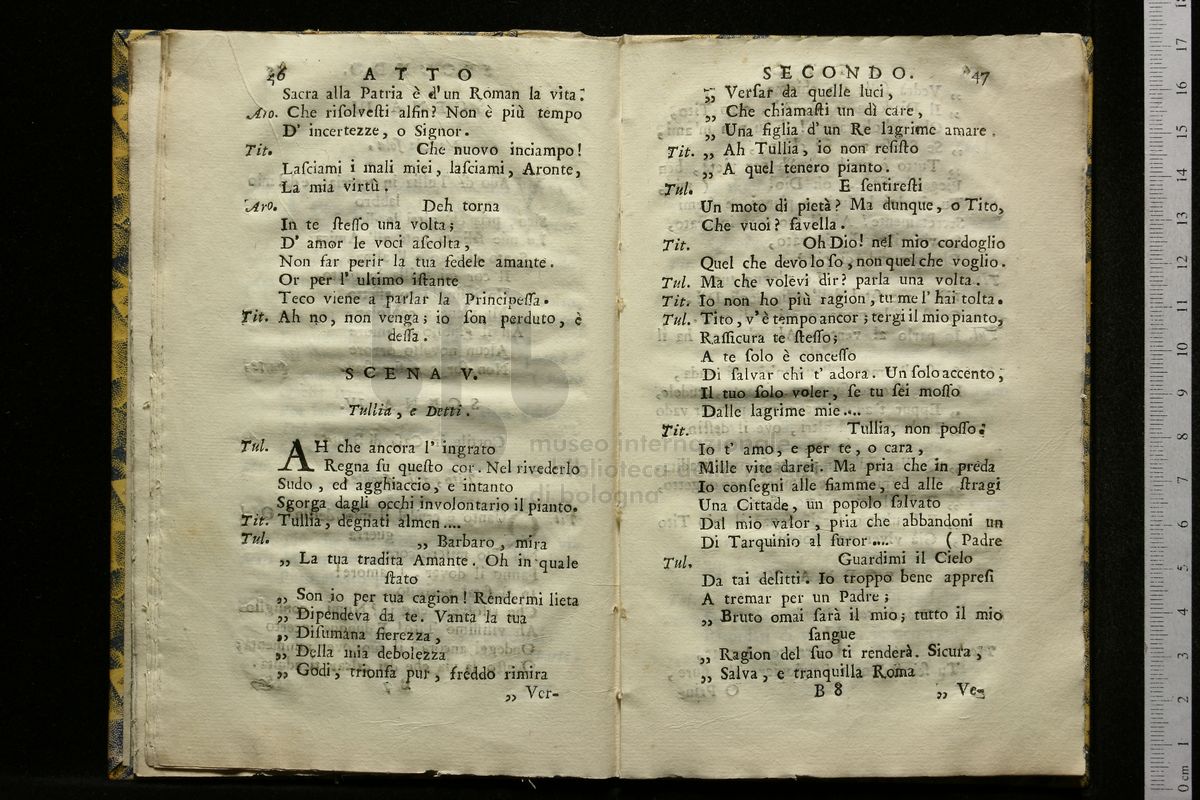 46 ATTO
Sacra alla Patria è d'un Roman la vita.
Aro. Che risolvesti alfin? Non è più tempo
D' incertezze, o Signor.
Tit. Che nuovo inciampo!
Lasciami i mali miei, lasciami, Aronte,
La mia virtù.
Aro. Deh torna
In te stesso una volta;
D' amor le voci ascolta,
Non far perir la tua fedele amante.
Or per l' ultimo istante
Teco viene a parlar la Principessa.
Tit. Ah no, non venga; io son perduto, è
dessa.
SCENA V.
Tullia, e Detti.
Tul. AH che ancora l' ingrato
Regna su questo cor. Nel rivederlo
Sudo, ed agghiaccio, e intanto
Sgorga dagli occhi involontario il pianto.
Tit. Tullia, degnati almen....
Tul. „ Barbaro, mira
„ La tua tradita Amante. Oh in quale
stato
„ Son io per tua cagion! Rendermi lieta
„ Dipendeva da te. Vanta la tua
„ Disumana fierezza,
„ Della mia debolezza
„ Godi, trionfa pur, freddo rimira
„ Ver-
SECONDO. 47
„ Versar da quelle luci,
„ Che chiamasti un dì care,
„ Una figlia d' un Re lagrime amare.
Tit. „ Ah Tullia, io non resisto
„ A quel tenero pianto.
Tul. E sentiresti
Un moto di pietà? Ma dunque, o Tito,
Che vuoi? favella.
Tit. Oh Dio! nel mio cordoglio
Quel che devo lo so, non quel che voglio.
Tul. Ma che volevi dir? parla una volta.
Tit. Io non ho più ragion, tu me l' hai tolta.
Tul. Tito, v' è tempo ancor; tergi il mio pianto,
Rassicura te stesso;
A te solo è concesso
Di salvar chi t' adora. Un solo accento,
Il tuo solo voler, se tu sei mosso
Dalle lagrime mie....
Tit. Tullia, non posso.
Io t' amo, e per te, o cara,
Mille vite darei. Ma pria che in preda
Io consegni alle fiamme, ed alle stragi
Una Cittade, un popolo salvato
Dal mio valor, pria che abbandoni un
Di Tarquinio al furor.... ( Padre
Tul. Guardimi il Cielo
Da tai delitti. Io troppo bene appresi
A tremar per un Padre;
„ Bruto omai sarà il mio; tutto il mio
sangue
„ Ragion del suo ti renderà. Sicura,
„ Salva, e tranquilla Roma
B 8 „ Ve-
museo internazionale
biblioteca della musica
di bologna